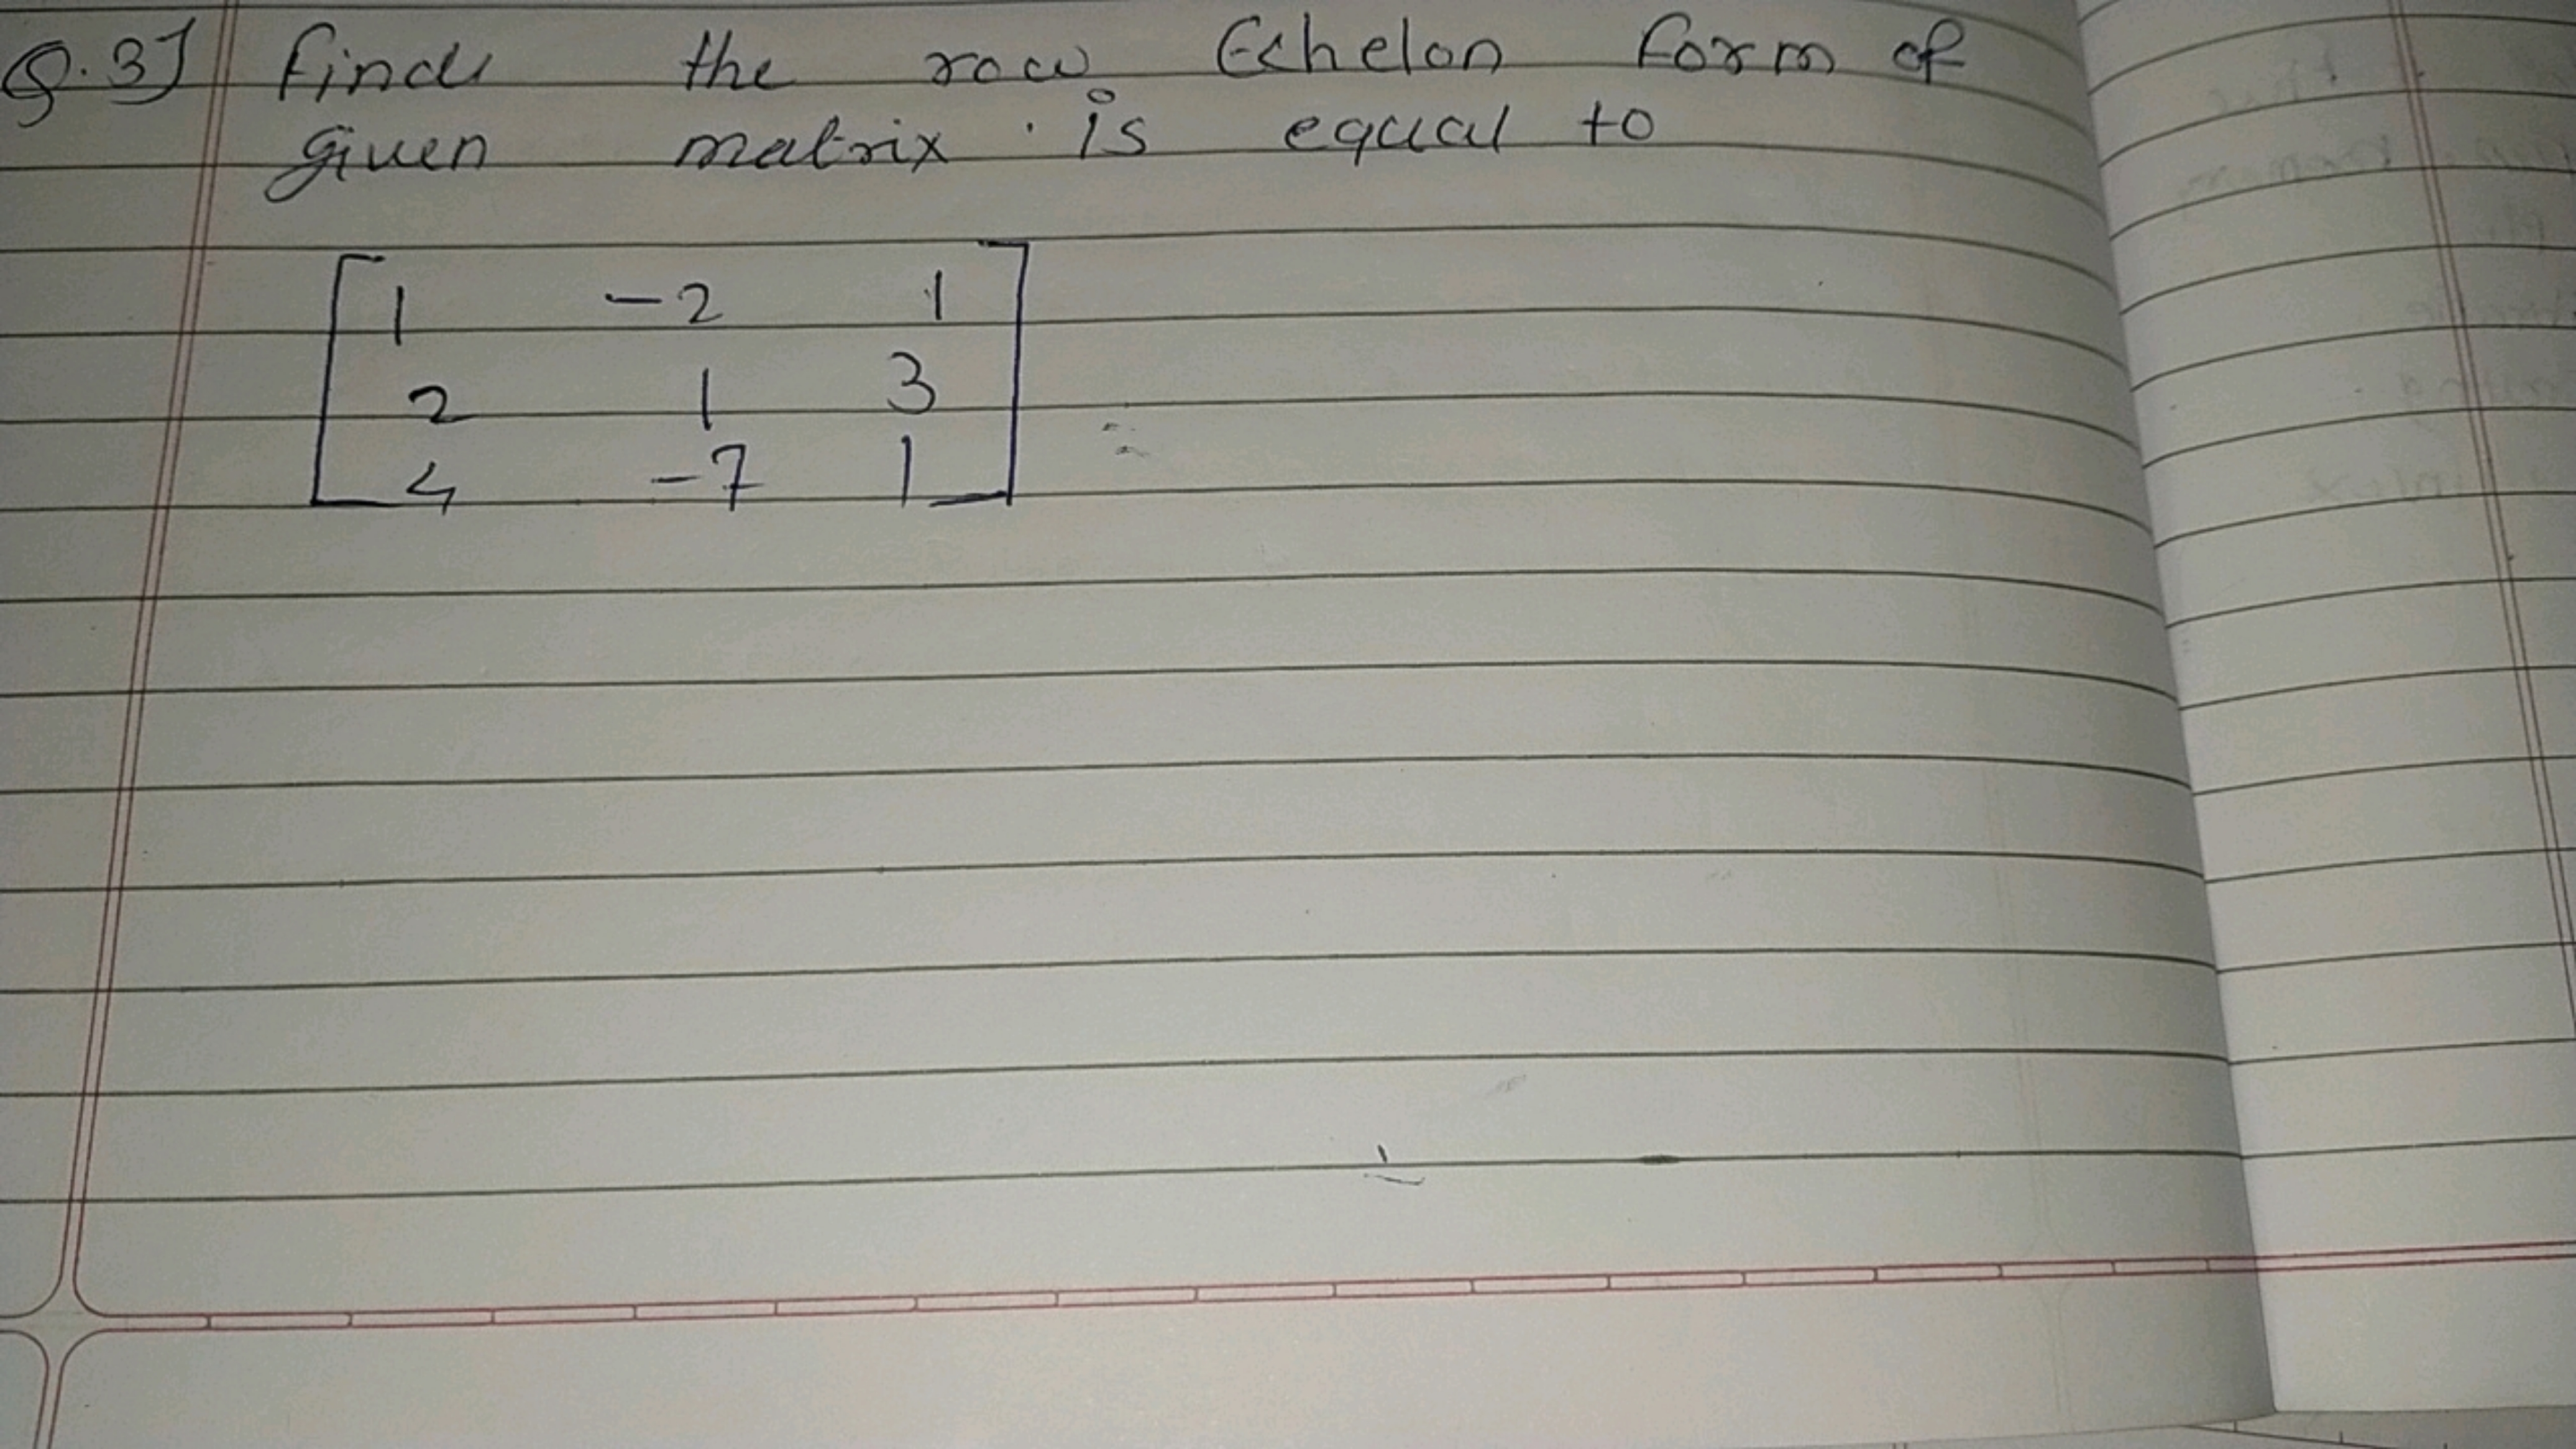 Q.3] find the row Echelon form of
given matrix is equal to
1 -2 1
2 1 3
4 -7 1